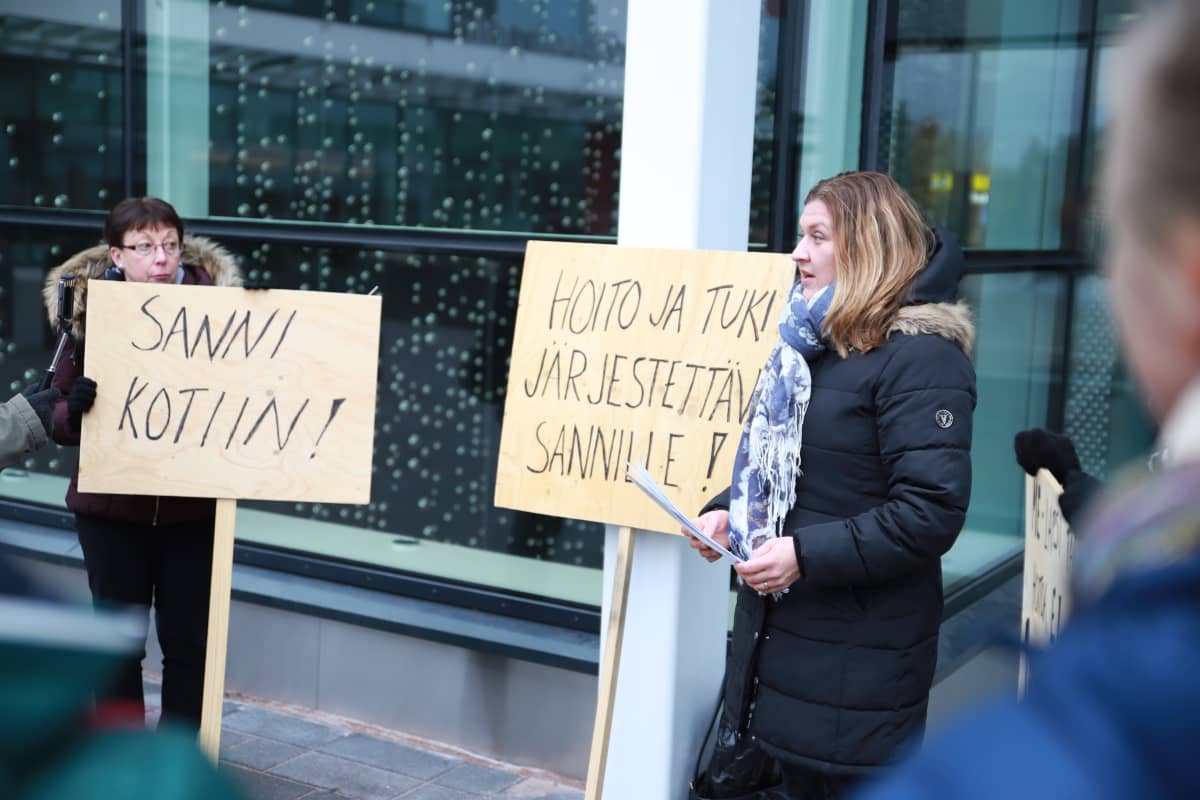 SANNI
KOTIIN!
HOITO JA TUKI
JÄRJESTETTÄVÄ
SANNILLE!